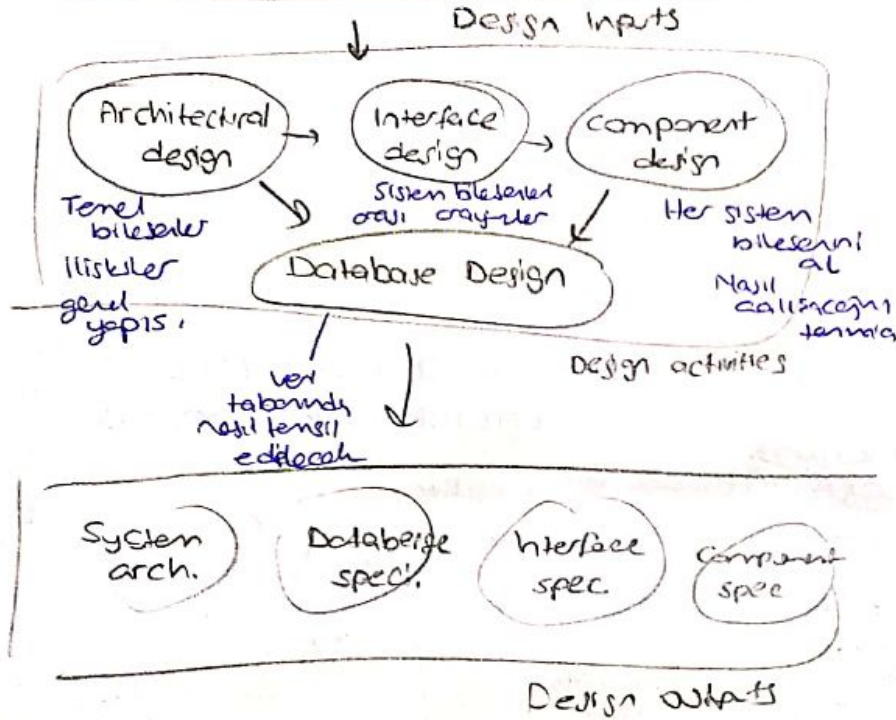 Design Inputs
Architectural
design
Interface
design
component
design
Temel
bileşenler
ilişkiler
genel
yapısı
Sistem bileşenleri
arası arayüzler
Her sistem
bileşenini
al
Nasıl
çalışacağını
tanımla
Database Design
Design activities
veri
tabanında
nasıl temsil
edilecek
System
arch.
Database
spec.
Interface
spec.
Component
spec
Design outputs